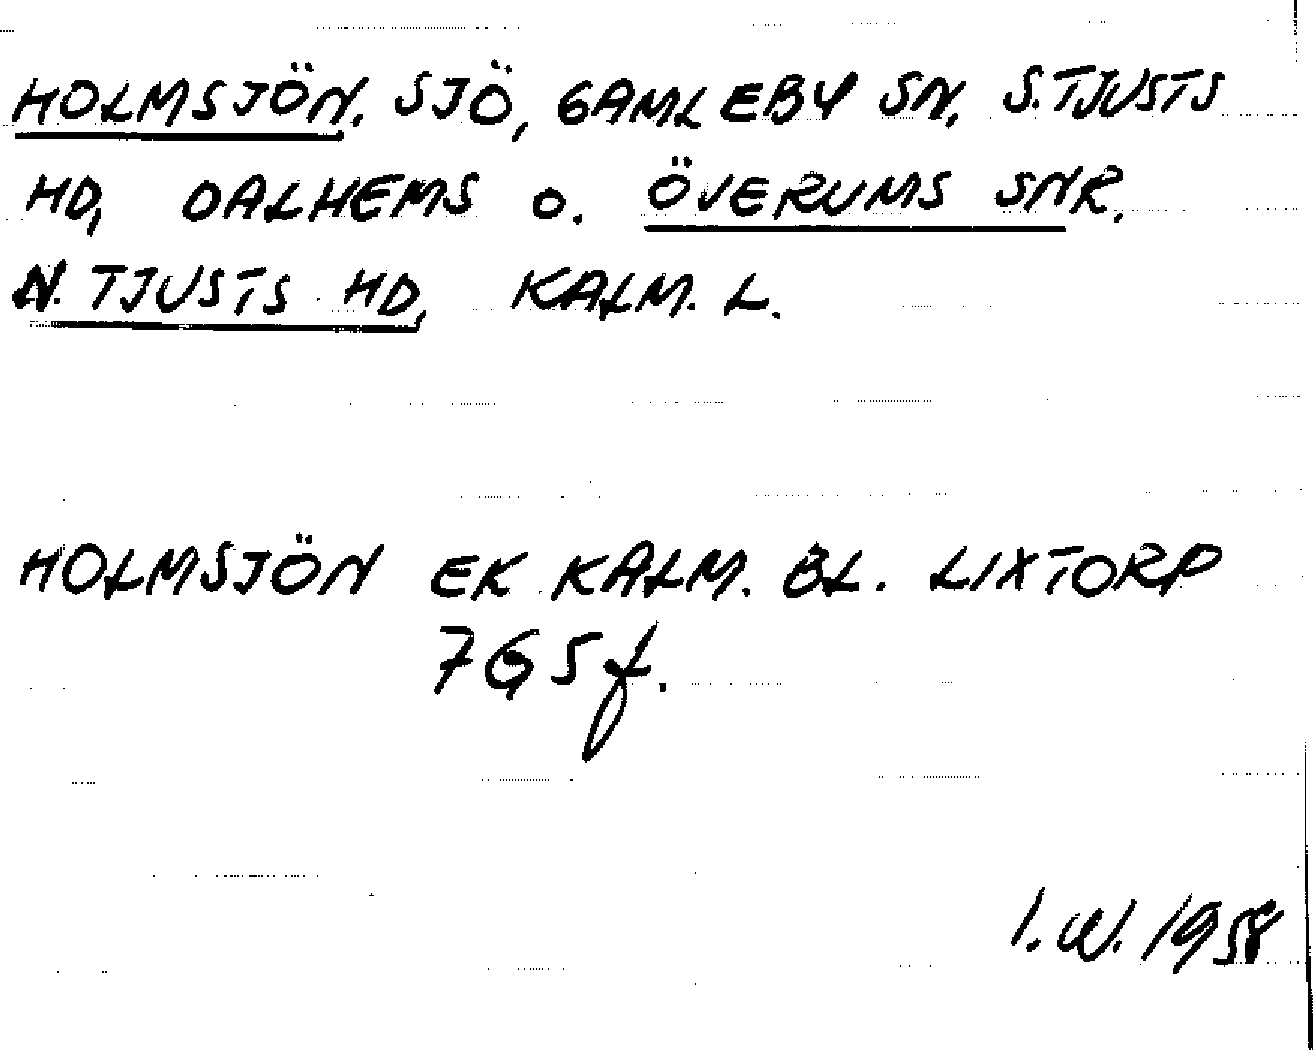 HOLMSJÖN. SJÖ, GAMLEBY SN, S. TJUSTS
HD, DALHEMS O. ÖVERUMS SNR,
N. TJUSTS HD, KALM. L.
HOLMSJÖN EK KALM. BL. LIXTORP
7G5f.
I.W. 1958